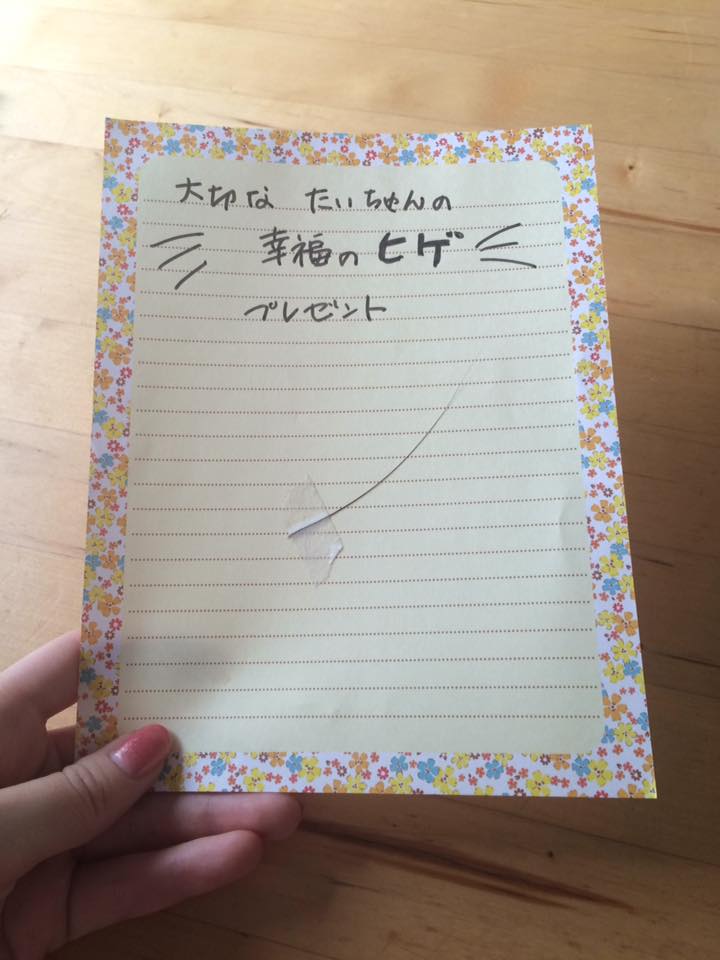 大切な たいちゃんの
幸福のヒゲ
プレゼント